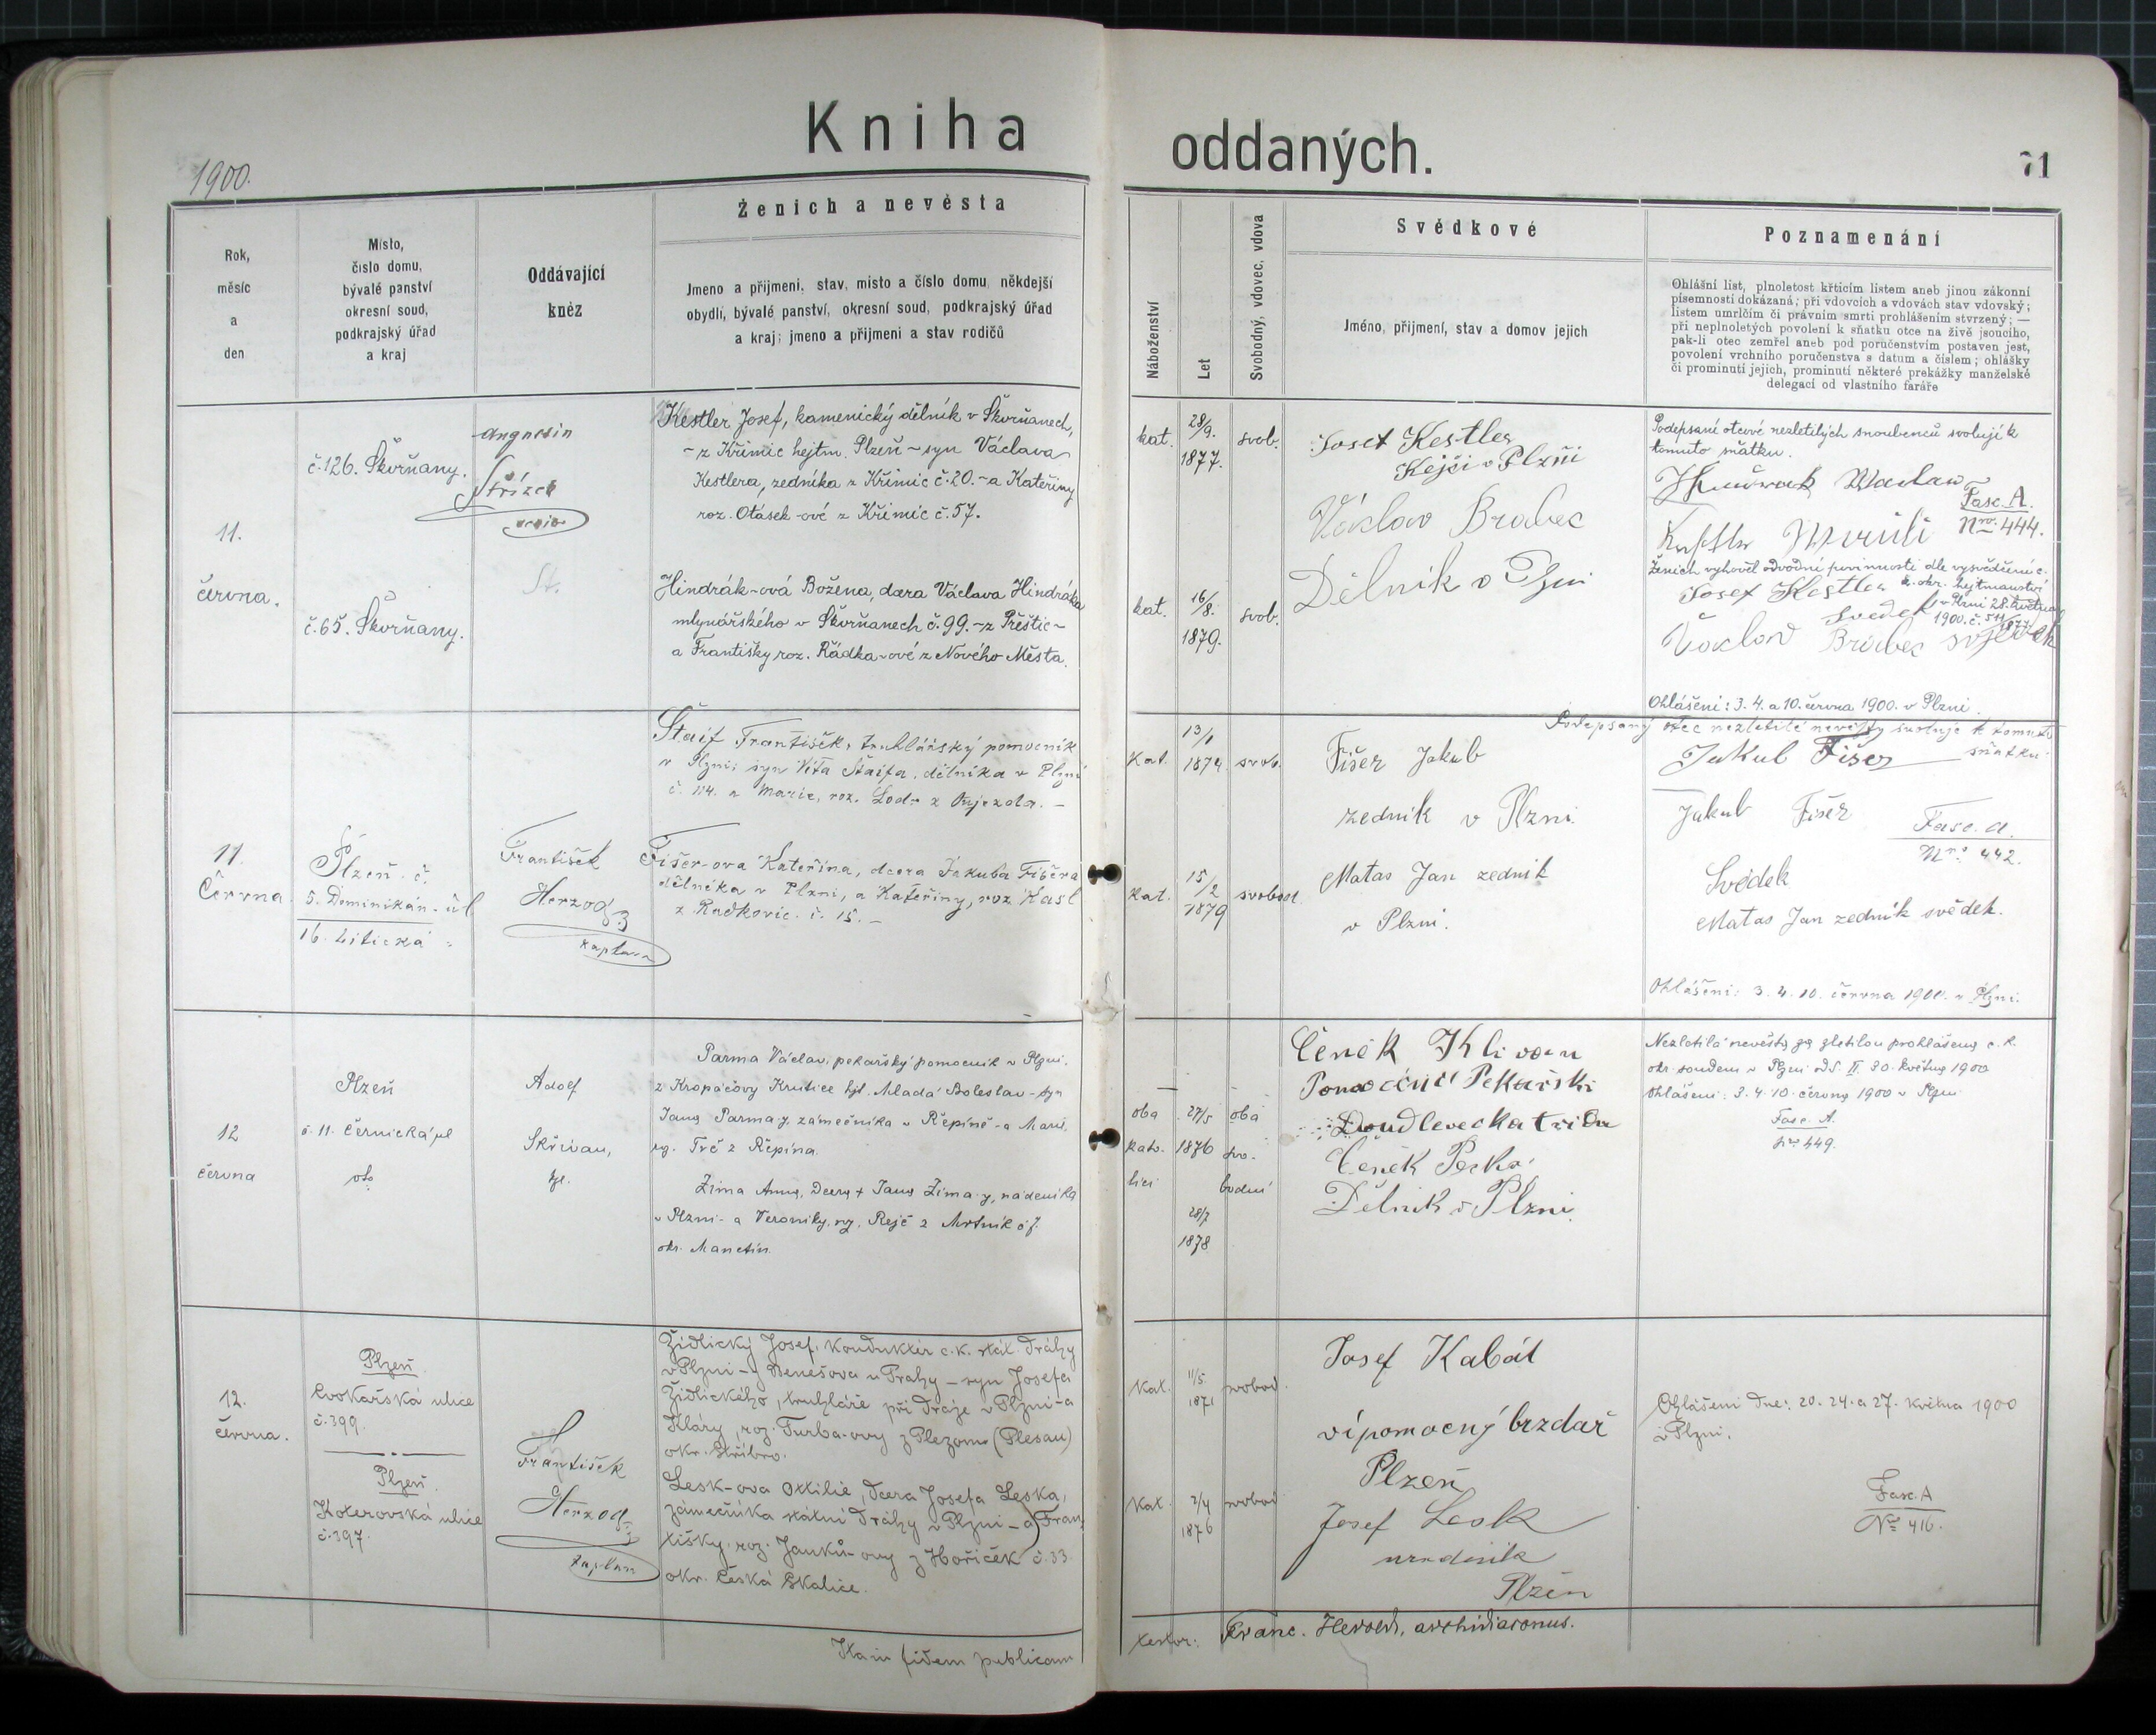 Kniha oddaných.
1900.
71
Rok,
měsíc
a
den
Místo,
číslo domu,
bývalé panství
okresní soud,
podkrajský úřad
a kraj
Oddávající
kněz
Ženich a nevěsta
Jmeno a přijmeni, stav, misto a číslo domu, někdejší
obydlí, bývalé panství, okresní soud, podkrajský úřad
a kraj; jmeno a přijmeni a stav rodičů
Náboženství
Let
Svobodný, vdovec, vdova
Svědkové
Jméno, přijmení, stav a domov jejich
Poznamenání
Ohlášní list, plnoletost křticím listem aneb jinou zákonní
písemností dokázaná; při vdovcích a vdovách stav vdovský;
listem umrlčím či právním smrti prohlášením stvrzený; —
při neplnoletých povolení k sňatku otce na živě jsoucího,
pak-li otec zemřel aneb pod poručenstvím postaven jest,
povolení vrchního poručenstva s datum a číslem; ohlášky
či prominutí jejich, prominutí některé prekážky manželské
delegací od vlastního faráře
11.
června.
č. 126. Škvrňany.
č. 65. Škvrňany.
Střízek
St.
Kestler Josef, kamenický dělník v Škvrňanech,
- z Křimic hejtm. Plzeň - syn Václava
Kestlera, zedníka z Křimic č. 20. - a Kateřiny
roz. Otásek-ové z Křimic č. 57.
Hindrák-ová Božena, dcera Václava Hindráka
mlynářského v Škvrňanech č. 99. - z Přeštic -
a Františky roz. Řádka-ové z Nového Města.
kat.
28/9.
1877.
svob.
kat.
16/8.
1879.
svob.
Josef Kestler
v Plzni
Václav Brabec
Dělník v Plzni
Podepsaní otcové nezletilých snoubenců svolují k
tomuto sňatku.
Fasc. A.
Nro. 444.
Ženich vyhověl odvodní povinnosti dle vysvědčení c.
k. okr. hejtmanství
v Plzni 28. května
1900. č.
Josef Kestler
svedek
Václav Brabec svědek
Ohlášeni: 3. 4. a 10. června 1900. v Plzni.
11.
Června
Plzeň č.
5. Dominikán. ul
16. Litická "
František
Herzog
kaplan
Štaif František, truhlářský pomocník
v Plzni; syn Víta Štaifa, dělníka v Plzni
č. 114. a Marie, roz. Lod- z Oujezda. -
Fišer-ova Kateřina, dcera Jakuba Fišera
dělníka v Plzni, a Kateřiny, roz. Kasl
z Radkovic. č. 15. -
Kat.
13/1
1874
svob.
Kat.
15/2
1879
svobod
Fišer Jakub
zednik v Plzni
Matas Jan zednik
v Plzni.
Podepsaný otec nezletilé nevěsty svoluje k tomuto
sňatku.
Jakub Fišer
Jakub Fišer
Svědek
Fasc. A.
Nro. 442.
Matas Jan zedník svědek.
Ohlášeni: 3. 4. 10. června 1900. v Plzni.
12
června
Plzeň
č. 11. Černická ul
oba
Adolf
Skřivan,
Parma Václav, pekařský pomocník v Plzni.
z Kropáčovy Krutice hjt. Mladá Boleslav - syn
Jana Parma-y, zámečníka v Řepíně - a Marie,
rz. Trč z Řepína.
Zima Anna, Dcera † Jana Zima-y, nádeníka
v Plzni - a Veroniky, rz. Rejč z Mrtník č. 7.
okr. Manetín.
oba
kato-
lici
27/5
1876
28/7
1878
oba
svo-
bodni
Čeněk
Pomocnik Pekařski
Doudlevecka trida
Čeněk Peška
Dělnik v Plzni.
Nezletilá nevěsta za zletilou prohlášena c. k.
okr. soudem v Plzni odd. II. 30. května 1900
Ohlášeni: 3. 4. 10. června 1900 v Plzni
Fasc. A.
Nro 449.
12.
června.
Plzeň.
Cvokařská ulice
č. 399.
Plzeň.
Koterovská ulice
č. 397.
František
Herzog
kaplan
Židlický Josef, konduktér c. k. stát. dráhy
v Plzni - z Benešova u Prahy - syn Josefa
Židlického, truhláře při dráze v Plzni - a
Kláry, roz. Turba-ovy z Plezomi (Plesau)
okr. Stříbro.
Lesk-ova Ottilie, dcera Josefa Leska,
zámečníka státní dráhy v Plzni - a Fran-
tišky, roz. Janků-ovy z Hořiček č. 33
okr. Česká Skalice.
Kat.
11/5
1871
svobod.
Kat.
2/4
1876
svobod
Josef Kabát
vípomocný brzdař
Plzeň
Josef Lesk
uradnik
Plzeň
Ohlášeni dne: 20. 24. a 27. května 1900
v Plzni.
Fasc. A
Nro 416.
Ita in fidem publicam
testor: Franc. Herold, archidiaconus.